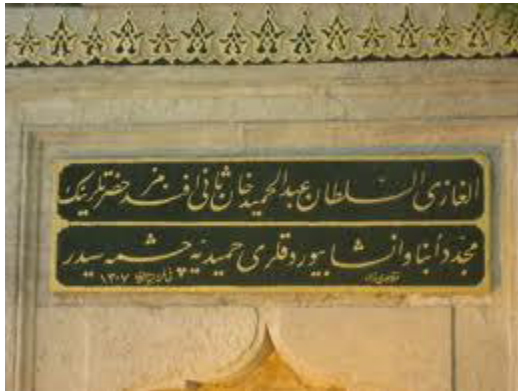 الغازى السلطان عبد الحميد خان ثانى افندمز حضرتلرينك
مجدداً بنا و انشا بيوردقلرى حميديه چشمه سيدر
١٣٠٧